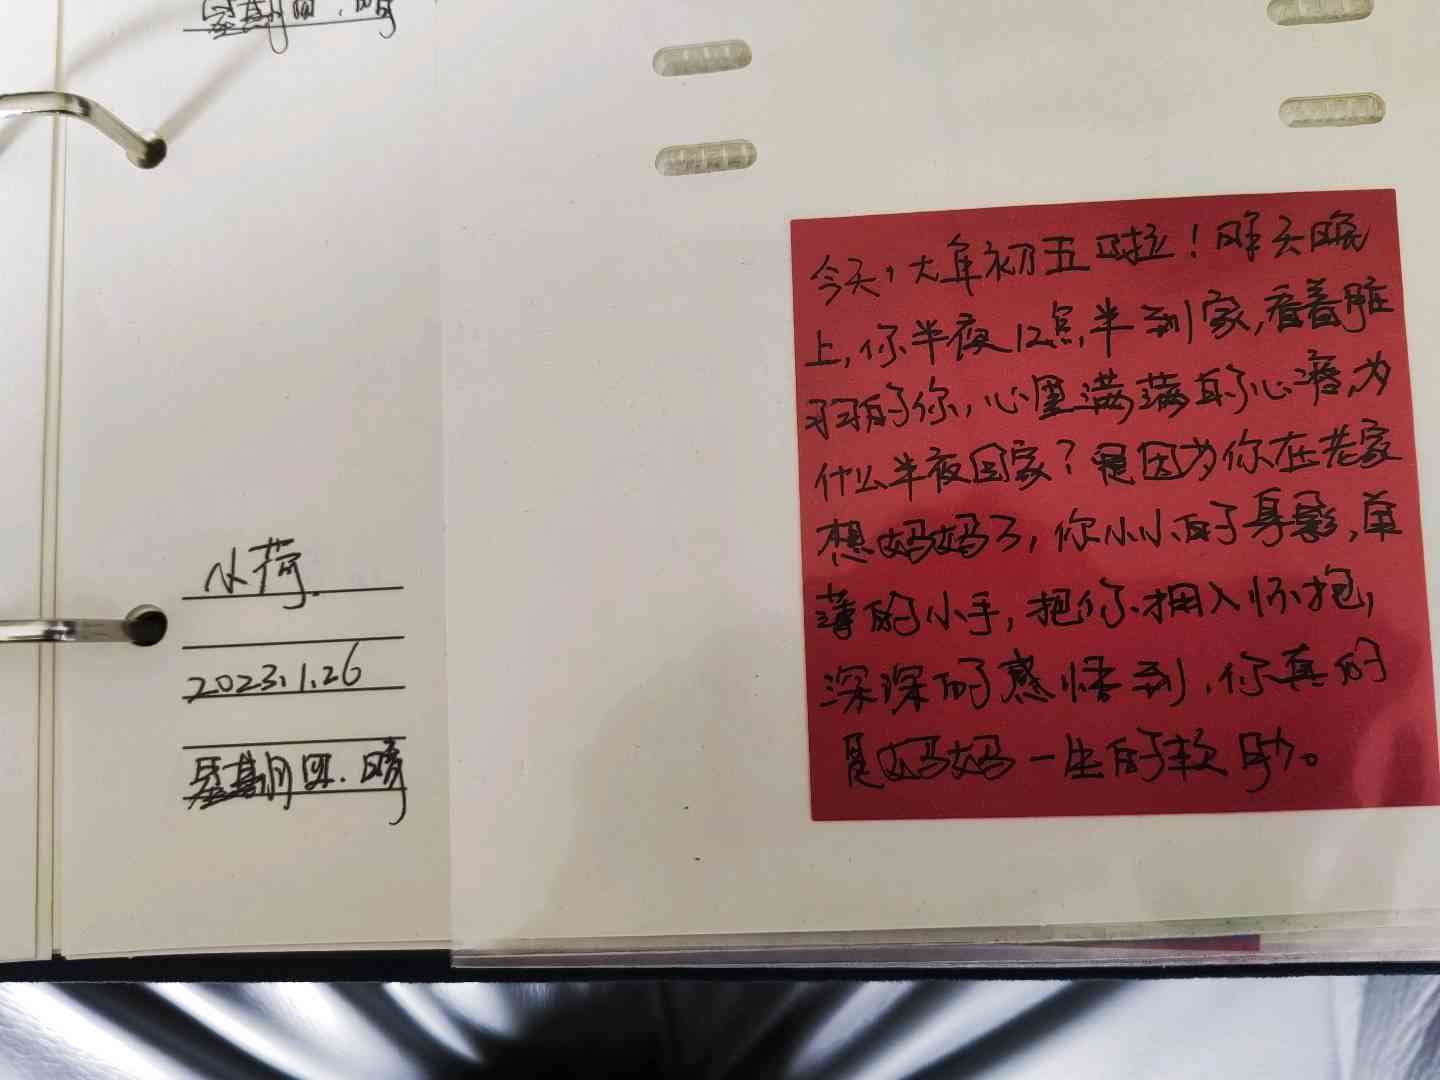 星期四.晴
小荷.
2023.1.26
星期四.晴
今天,大年初五啦!昨天晚
上,你半夜12点半到家,看着脏
狗的你,心里满满的心疼,为
什么半夜回家?是因为你在老家
想妈妈了,你小小的身影,单
薄的小手,把你拥入怀抱,
深深的感悟到,你真的
是妈妈一生的软肋。